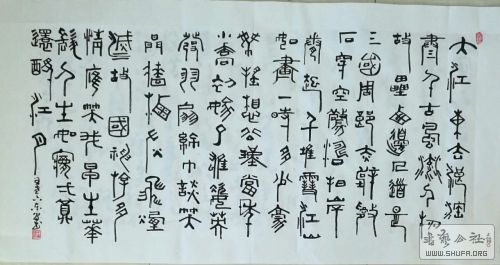 大江東去浪淘
盡千古風流人物
故壘西邊人道是
三國周郎赤壁亂
石穿空驚濤拍岸
卷起千堆雪江山
如畫一時多少豪
傑遙想公瑾當年
小喬初嫁了雄姿英
發羽扇綸巾談笑
間檣櫓灰飛煙
滅故國神遊多
情應笑我早生華
髮人生如夢一尊
還酹江月
书艺公社
WWW.SHUFA.ORG